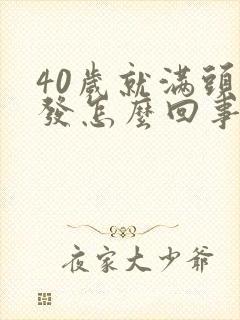 40歲就滿頭
發怎麼回事
夜家大少爺